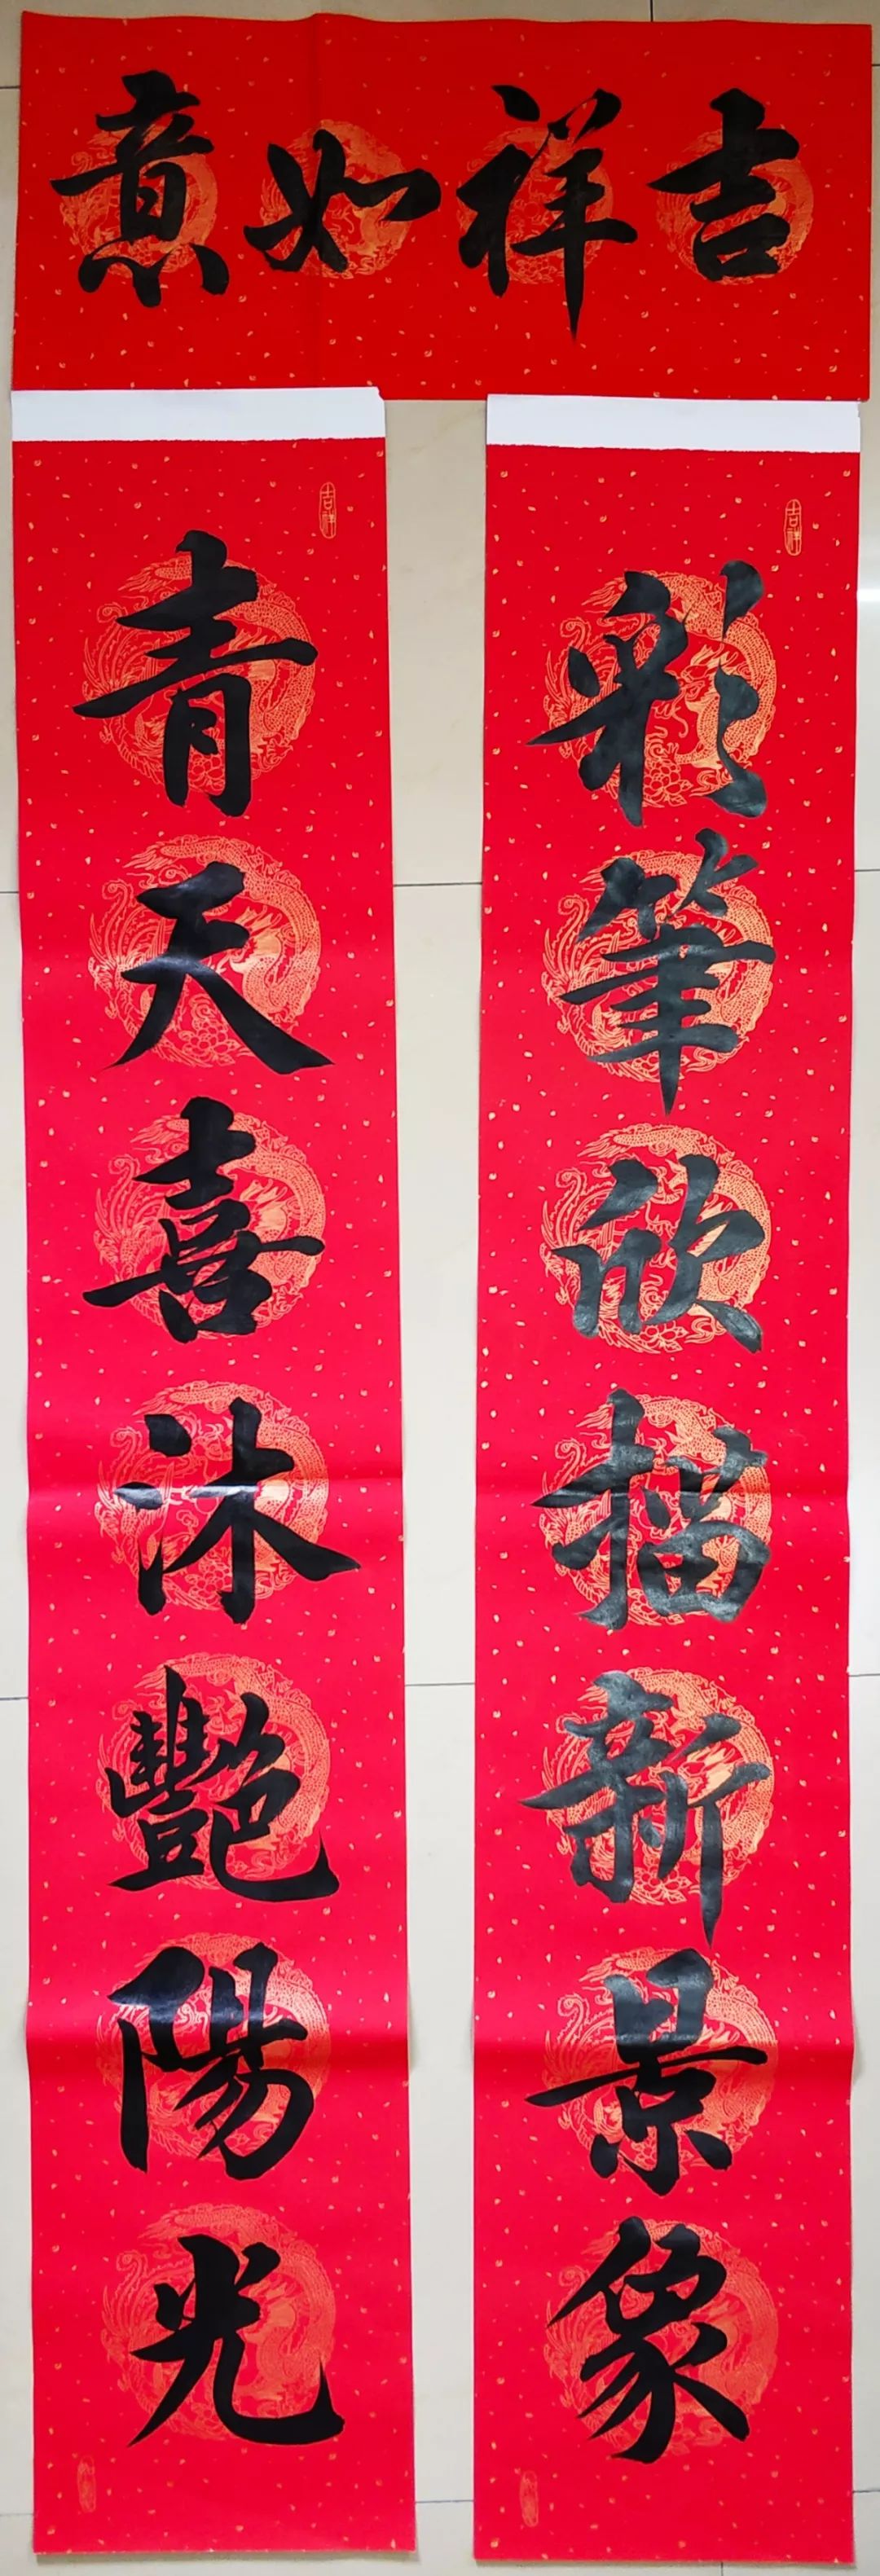 吉祥如意
彩筆欣描新景象
青天喜沐艷陽光
吉祥
吉祥